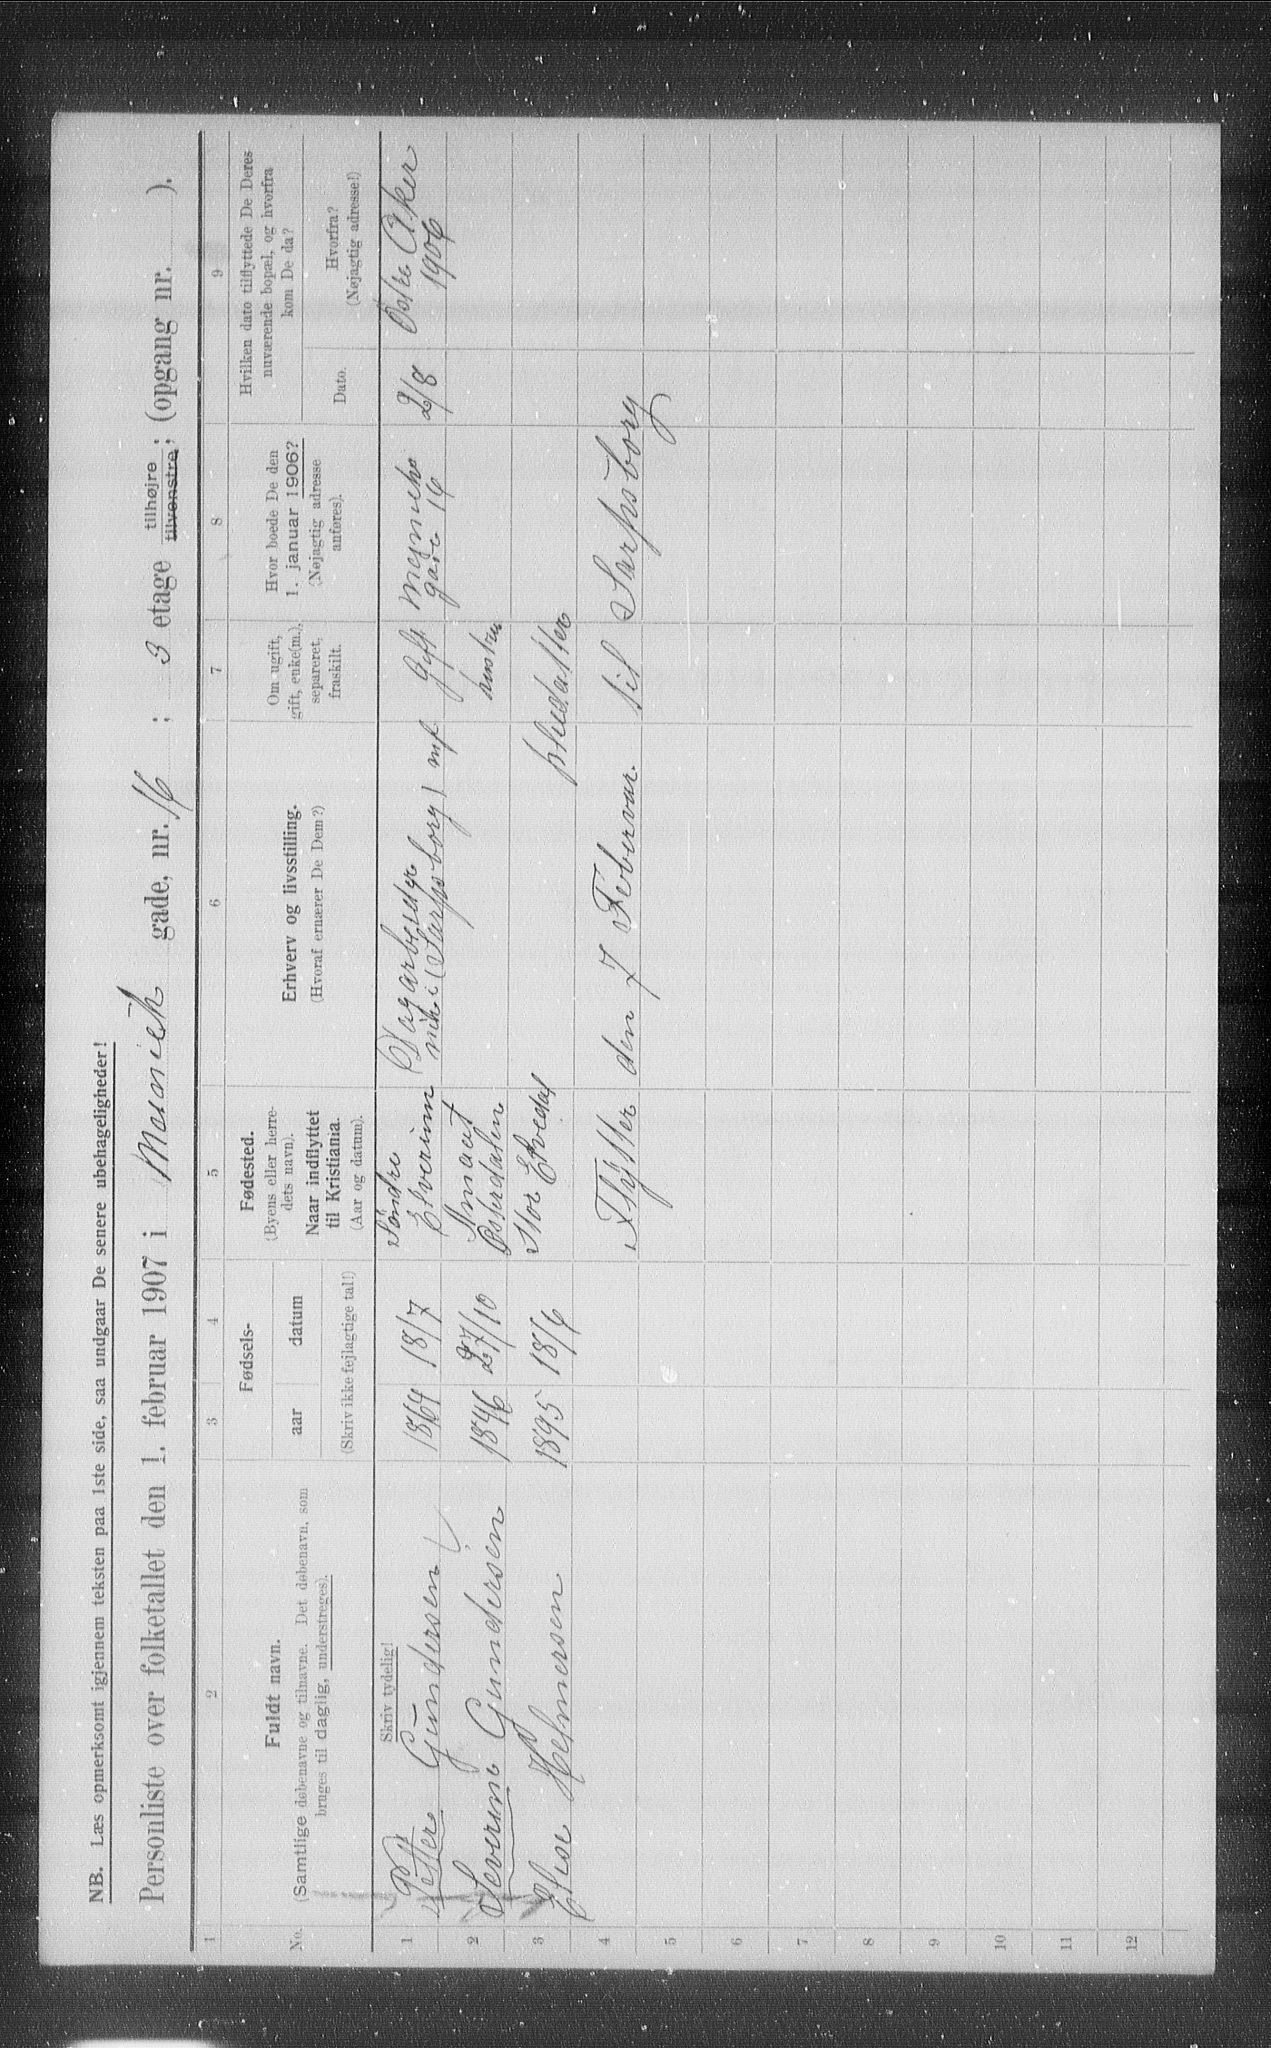 NB. Læs opmerksomt igjennem teksten paa 1ste side, saa undgaar De senere ubehageligheder!
Personliste over folketallet den 1. februar 1907 i gade, nr. 16 ; 3 etage tilhøjre tilvenstre; (opgang nr. ).
1 2 3 4 5 6 7 8 9
No.
Fuldt navn.
(Samtlige døbenavne og tilnavne. Det døbenavn, som
bruges til daglig, understreges).
Fødsels-
aar datum
(Skriv ikke fejlagtige tal!)
Fødested.
(Byens eller herre-
dets navn).
Naar indflyttet
til Kristiania.
(Aar og datum).
Erhverv og livsstilling.
(Hvoraf ernærer De Dem?)
Om ugift,
gift, enke(m.),
separeret,
fraskilt.
Hvor boede De den
1. januar 1906?
(Nøjagtig adresse
anføres).
Hvilken dato tilflyttede De Deres
nuværende bopæl, og hvorfra
kom De da?
Dato.
Hvorfra?
(Nøjagtig adresse!)
Skriv tydelig!
1 Petter Gundersen 1864 18/7 Söndre Elverum Dagarbeider (Sarpsborg) mf Gift gade 16 2/8 Østre Aker 1906
2 Severine Gundersen 1846 27/10 Østerdalen hustru
3 Helmersen 1895 18/6 Stor Elvedal pleiedatter
4 Flytter den 7 Februar til Sarpsborg
5
6
7
8
9
10
11
12